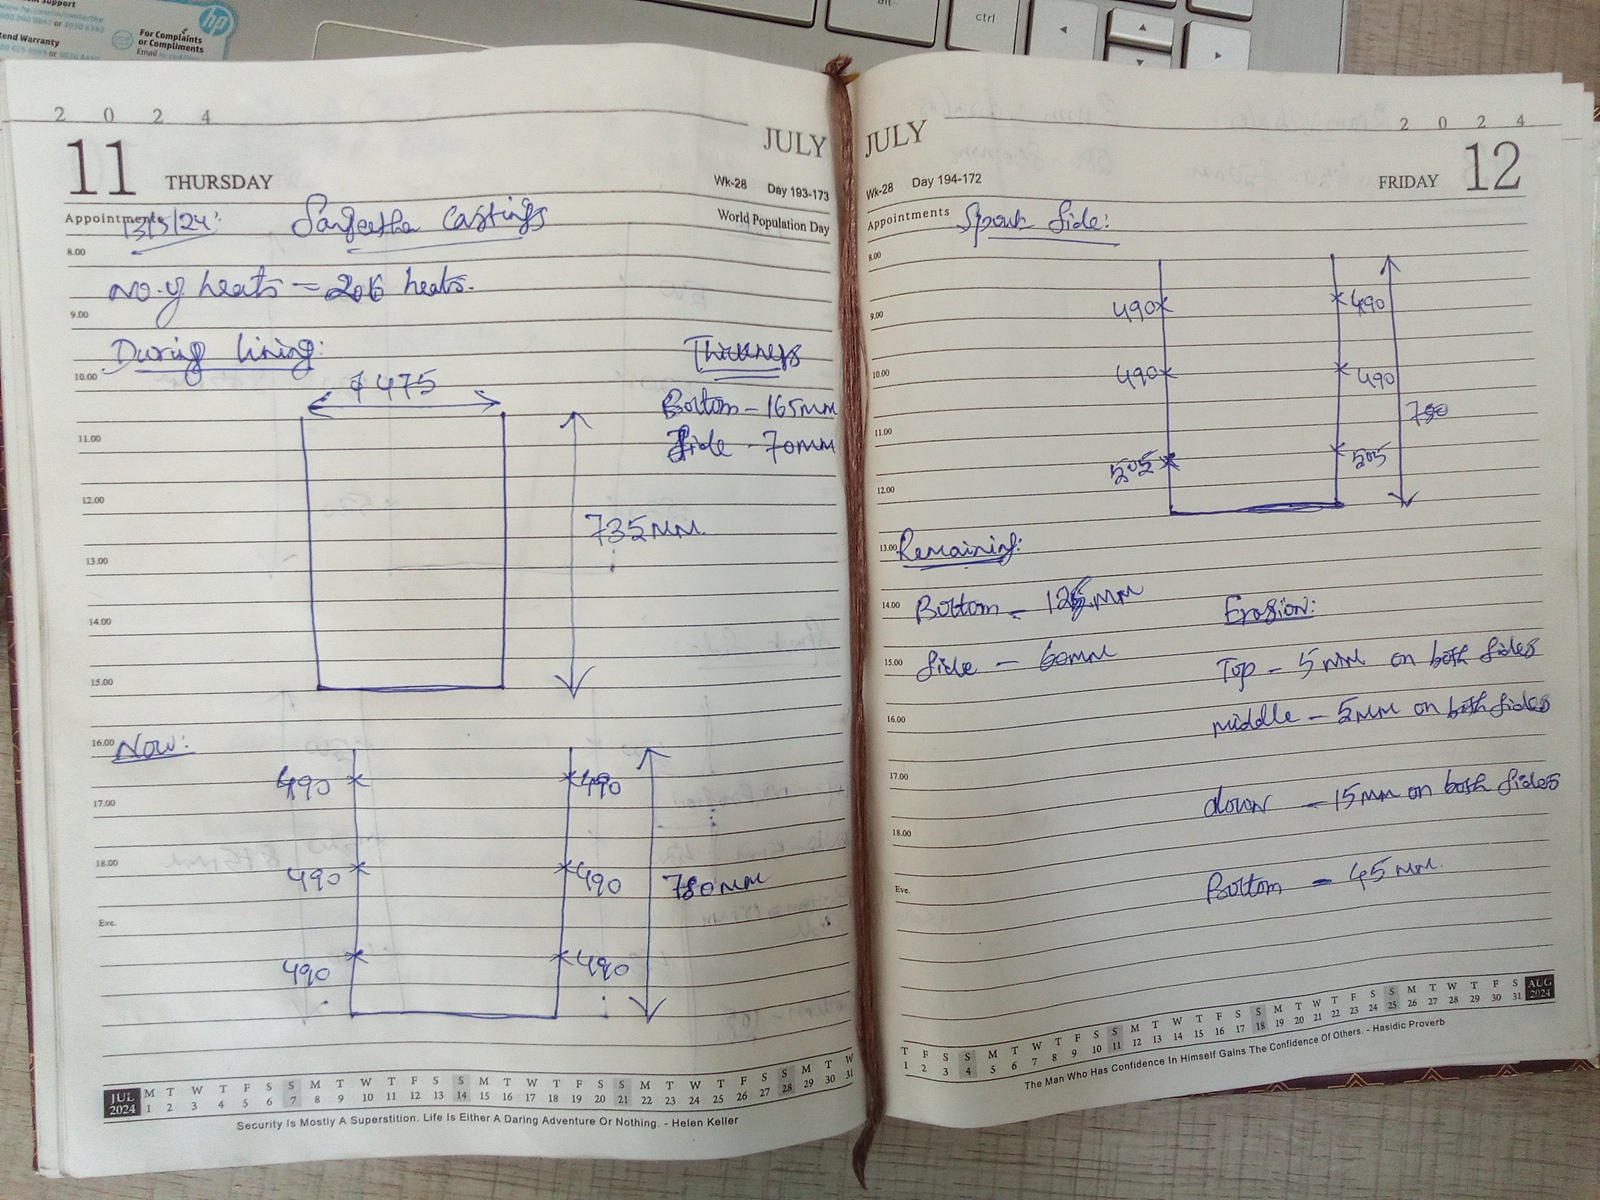 For Complaints
or Compliments
Email
hp
end Warranty
alt
ctrl
2 0 2 4
JULY
11 THURSDAY
Wk-28 Day 193-173
Appointments 13/5/24 Sangeetha Castings World Population Day
8.00
No. of heats = 206 heats.
9.00
During lining:
Thickness
10.00
φ 475
Bottom - 165mm
Side - 70mm
11.00
12.00
735mm
13.00
14.00
15.00
16.00
Now:
490 490
17.00
18.00
490 490
780mm
Eve.
490 490
JUL 2024
M T W T F S S M T W T F S S M T W T F S S M T W T F S S M T W
1 2 3 4 5 6 7 8 9 10 11 12 13 14 15 16 17 18 19 20 21 22 23 24 25 26 27 28 29 30 31
Security Is Mostly A Superstition. Life Is Either A Daring Adventure Or Nothing. - Helen Keller
JULY
2 0 2 4
Wk-28 Day 194-172
FRIDAY 12
Appointments Spout Side:
8.00
490 490
9.00
10.00
490 490
780
11.00
505 505
12.00
13.00
Remaining:
14.00
Bottom - 125mm
Erosion:
15.00
Side - 60mm
Top - 5mm on both sides
16.00
middle - 5mm on both sides
17.00
down - 15mm on both sides
18.00
Eve.
Bottom - 45mm
T F S S M T W T F S S M T W T F S S M T W T F S S M T W T F S
1 2 3 4 5 6 7 8 9 10 11 12 13 14 15 16 17 18 19 20 21 22 23 24 25 26 27 28 29 30 31
AUG 2024
The Man Who Has Confidence In Himself Gains The Confidence Of Others. - Hasidic Proverb